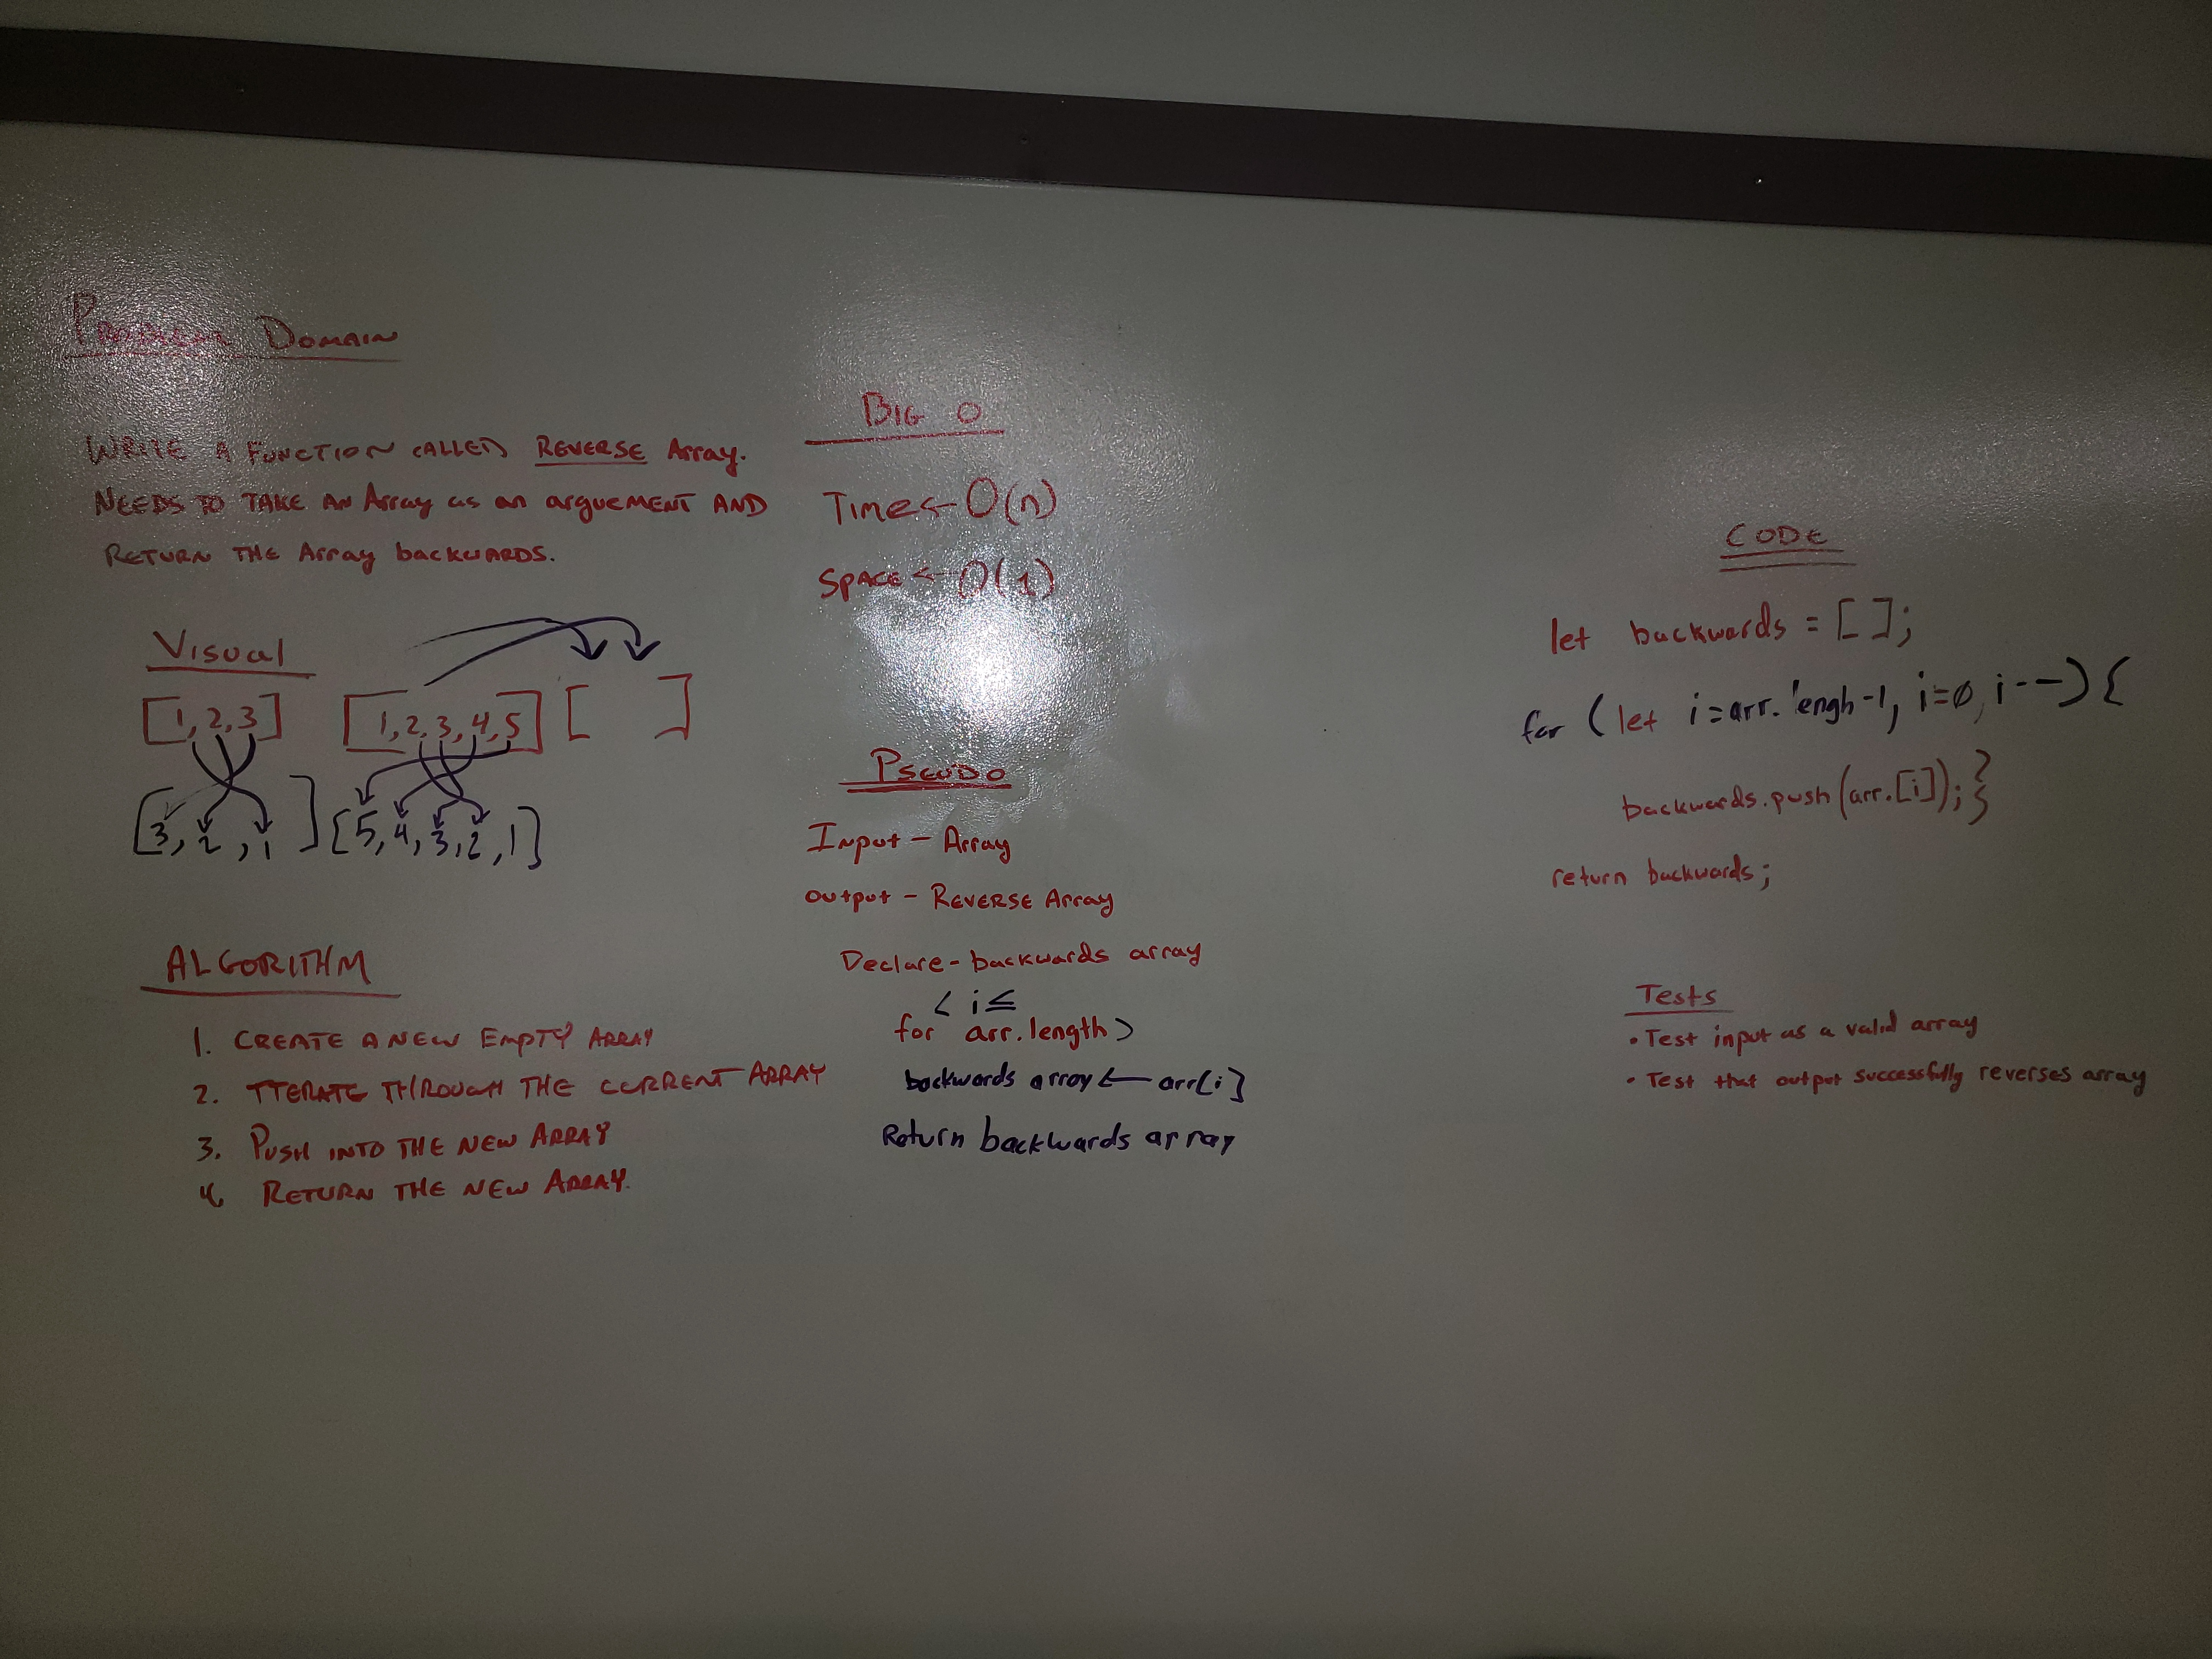 PROBLEM DOMAIN
WRITE A FUNCTION CALLED REVERSE Array.
NEEDS TO TAKE AN Array as an arguement AND
RETURN THE Array backwards.
Visual
[1, 2, 3] [1, 2, 3, 4, 5] [ ]
[3, 2, 1] [5, 4, 3, 2, 1]
ALGORITHM
1. CREATE A NEW EMPTY ARRAY
2. ITERATE THROUGH THE CURRENT ARRAY
3. PUSH INTO THE NEW ARRAY
4. RETURN THE NEW ARRAY.
BIG O
Time ← O(n)
SPACE ← O(1)
PSEUDO
Input - Array
output - REVERSE Array
Declare - backwards array
< i ≤
for arr.length >
backwards array ← arr[i]
Return backwards array
CODE
let backwards = [];
for (let i=arr.lengh-1, i=0, i--) {
backwards.push(arr.[i]);}
return backwards;
Tests
• Test input as a valid array
• Test that output successfully reverses array